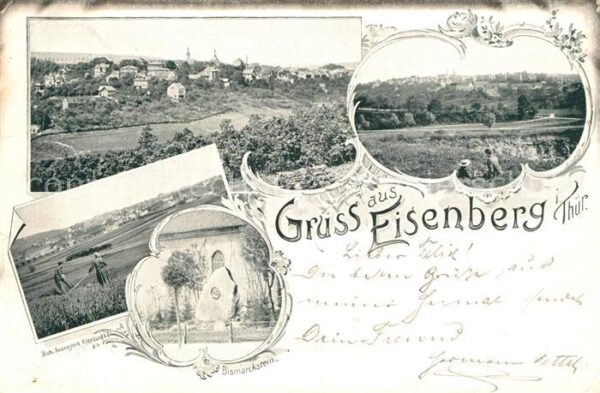 Gruss aus
Eisenberg i. Thür.
Lieber Felix!
Die besten Grüße aus
meiner Heimat sendet
Dein Freund
Hermann
Bismarckstein.